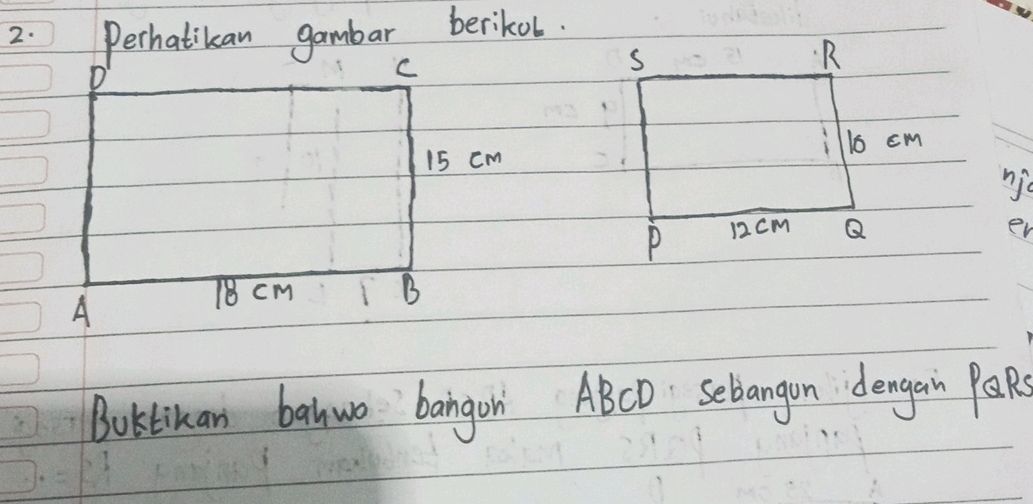 2. Perhatikan gambar berikut.
D C S R
15 cm 10 cm
P 12 cm Q
A 18 cm B
Buktikan bahwa bangun ABCD sebangun dengan PQRS